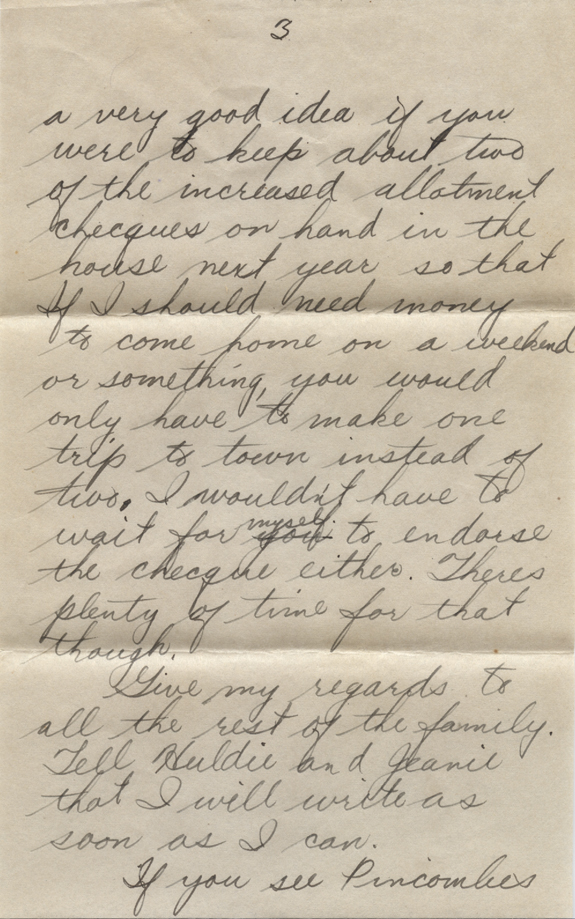 3
a very good idea if you
were to keep about two
of the increased allotment
checques on hand in the
house next year so that
If I should need money
to come home on a weekend
or something, you would
only have to make one
trip to town instead of
two. I wouldn't have to
myself
wait for you to endorse
the checque either. Theres
plenty of time for that
though.
Give my regards to
all the rest of the family.
Tell Huldie and Jeanie
that I will write as
soon as I can.
If you see Pincombes